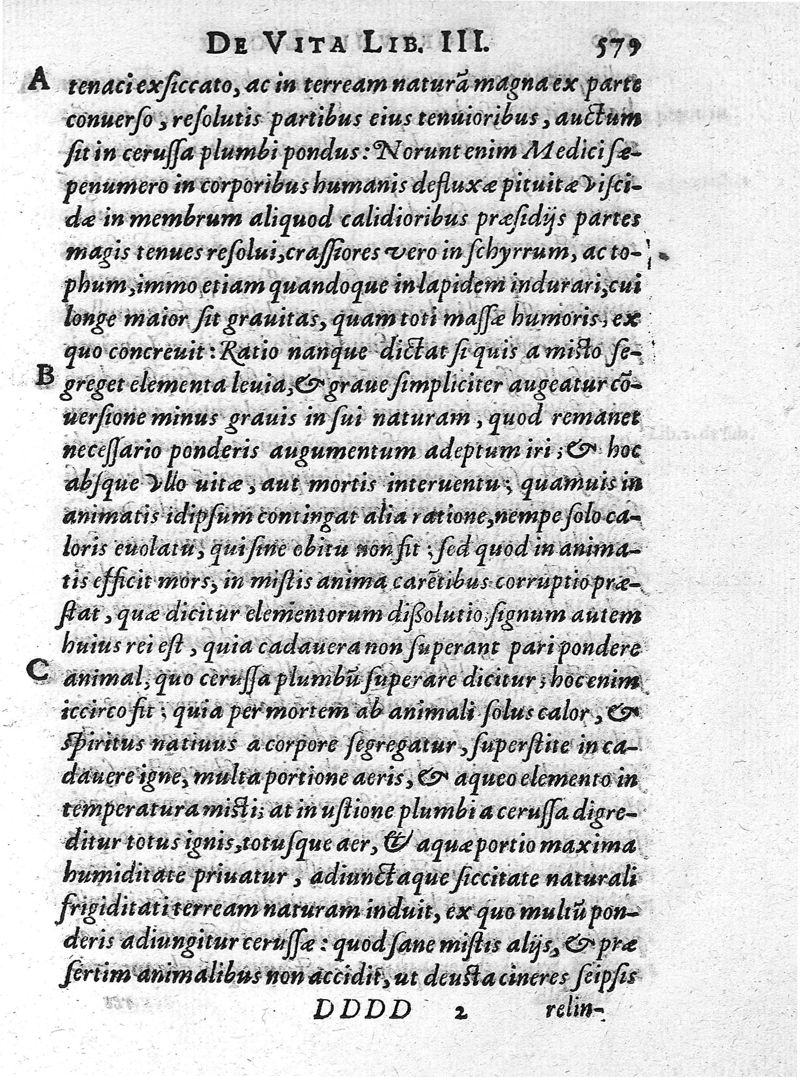 DE VITA LIB. III. 579
A tenaci exſiccato, ac in terream naturã magna ex parte
conuerſo, reſolutis partibus eius tenuioribus, auctum
ſit in ceruſſa plumbi pondus: Norunt enim Medici ſæ-
penumero in corporibus humanis defluxæ pituitæ viſci-
dæ in membrum aliquod calidioribus præſidijs partes
magis tenues reſolui, craſſiores vero in ſchyrrum, ac to-
phum, immo etiam quandoque in lapidem indurari, cui
longe maior ſit grauitas, quam toti maſſæ humoris, ex
quo concreuit: Ratio nanque dictat ſi quis a miſto ſe-
B greget elementa leuia, & graue ſimpliciter augeatur cõ-
uerſione minus grauis in ſui naturam, quod remanet
neceſſario ponderis augumentum adeptum iri; & hoc
abſque vllo uitæ, aut mortis interuentu; quamuis in
animatis idipſum contingat alia ratione, nempe ſolo ca-
loris euolatu, qui ſine obitu non fit; ſed quod in anima-
tis efficit mors, in miſtis anima carẽtibus corruptio præ-
ſtat, quæ dicitur elementorum diſſolutio; ſignum autem
huius rei eſt, quia cadauera non ſuperant pari pondere
C animal, quo ceruſſa plumbũ ſuperare dicitur; hoc enim
iccirco fit; quia per mortem ab animali ſolus calor, &
ſpiritus natiuus a corpore ſegregatur, ſuperſtite in ca-
dauere igne, multa portione aeris, & aqueo elemento in
temperatura miſti; at in uſtione plumbi a ceruſſa digre-
ditur totus ignis, totuſque aer, & aquæ portio maxima
humiditate priuatur, adiunctaque ſiccitate naturali
frigiditati terream naturam induit, ex quo multũ pon-
deris adiungitur ceruſſæ: quod ſane miſtis alijs, & præ
ſertim animalibus non accidit, ut deuſta cineres ſeipſis
DDDD 2 relin-